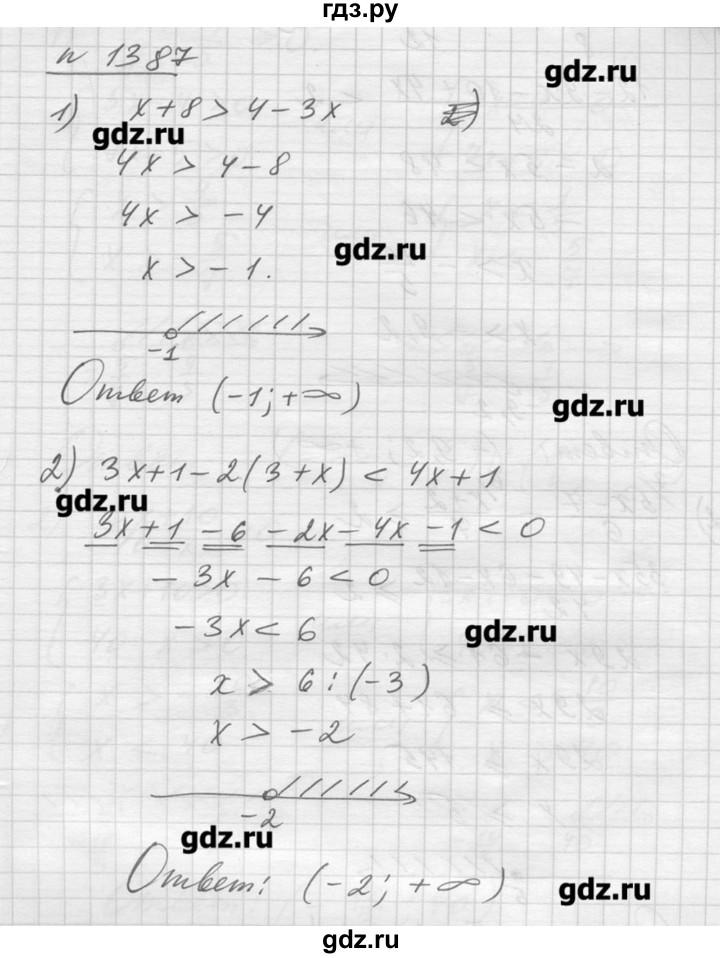 гдз.ру
n 1387
gdz.ru
1) x+8 > 4-3x 2)
gdz.ru
4x > 4-8
4x > -4
gdz.ru
x > -1.
-1
Ответ (-1; +∞)
gdz.ru
2) 3x+1-2(3+x) < 4x+1
gdz.ru
3x+1 -6 -2x-4x -1 < 0
-3x - 6 < 0
-3x < 6
gdz.ru
x > 6 : (-3)
x > -2
-2
gdz.ru
Ответ: (-2; +∞)
gdz.ru
gdz.ru